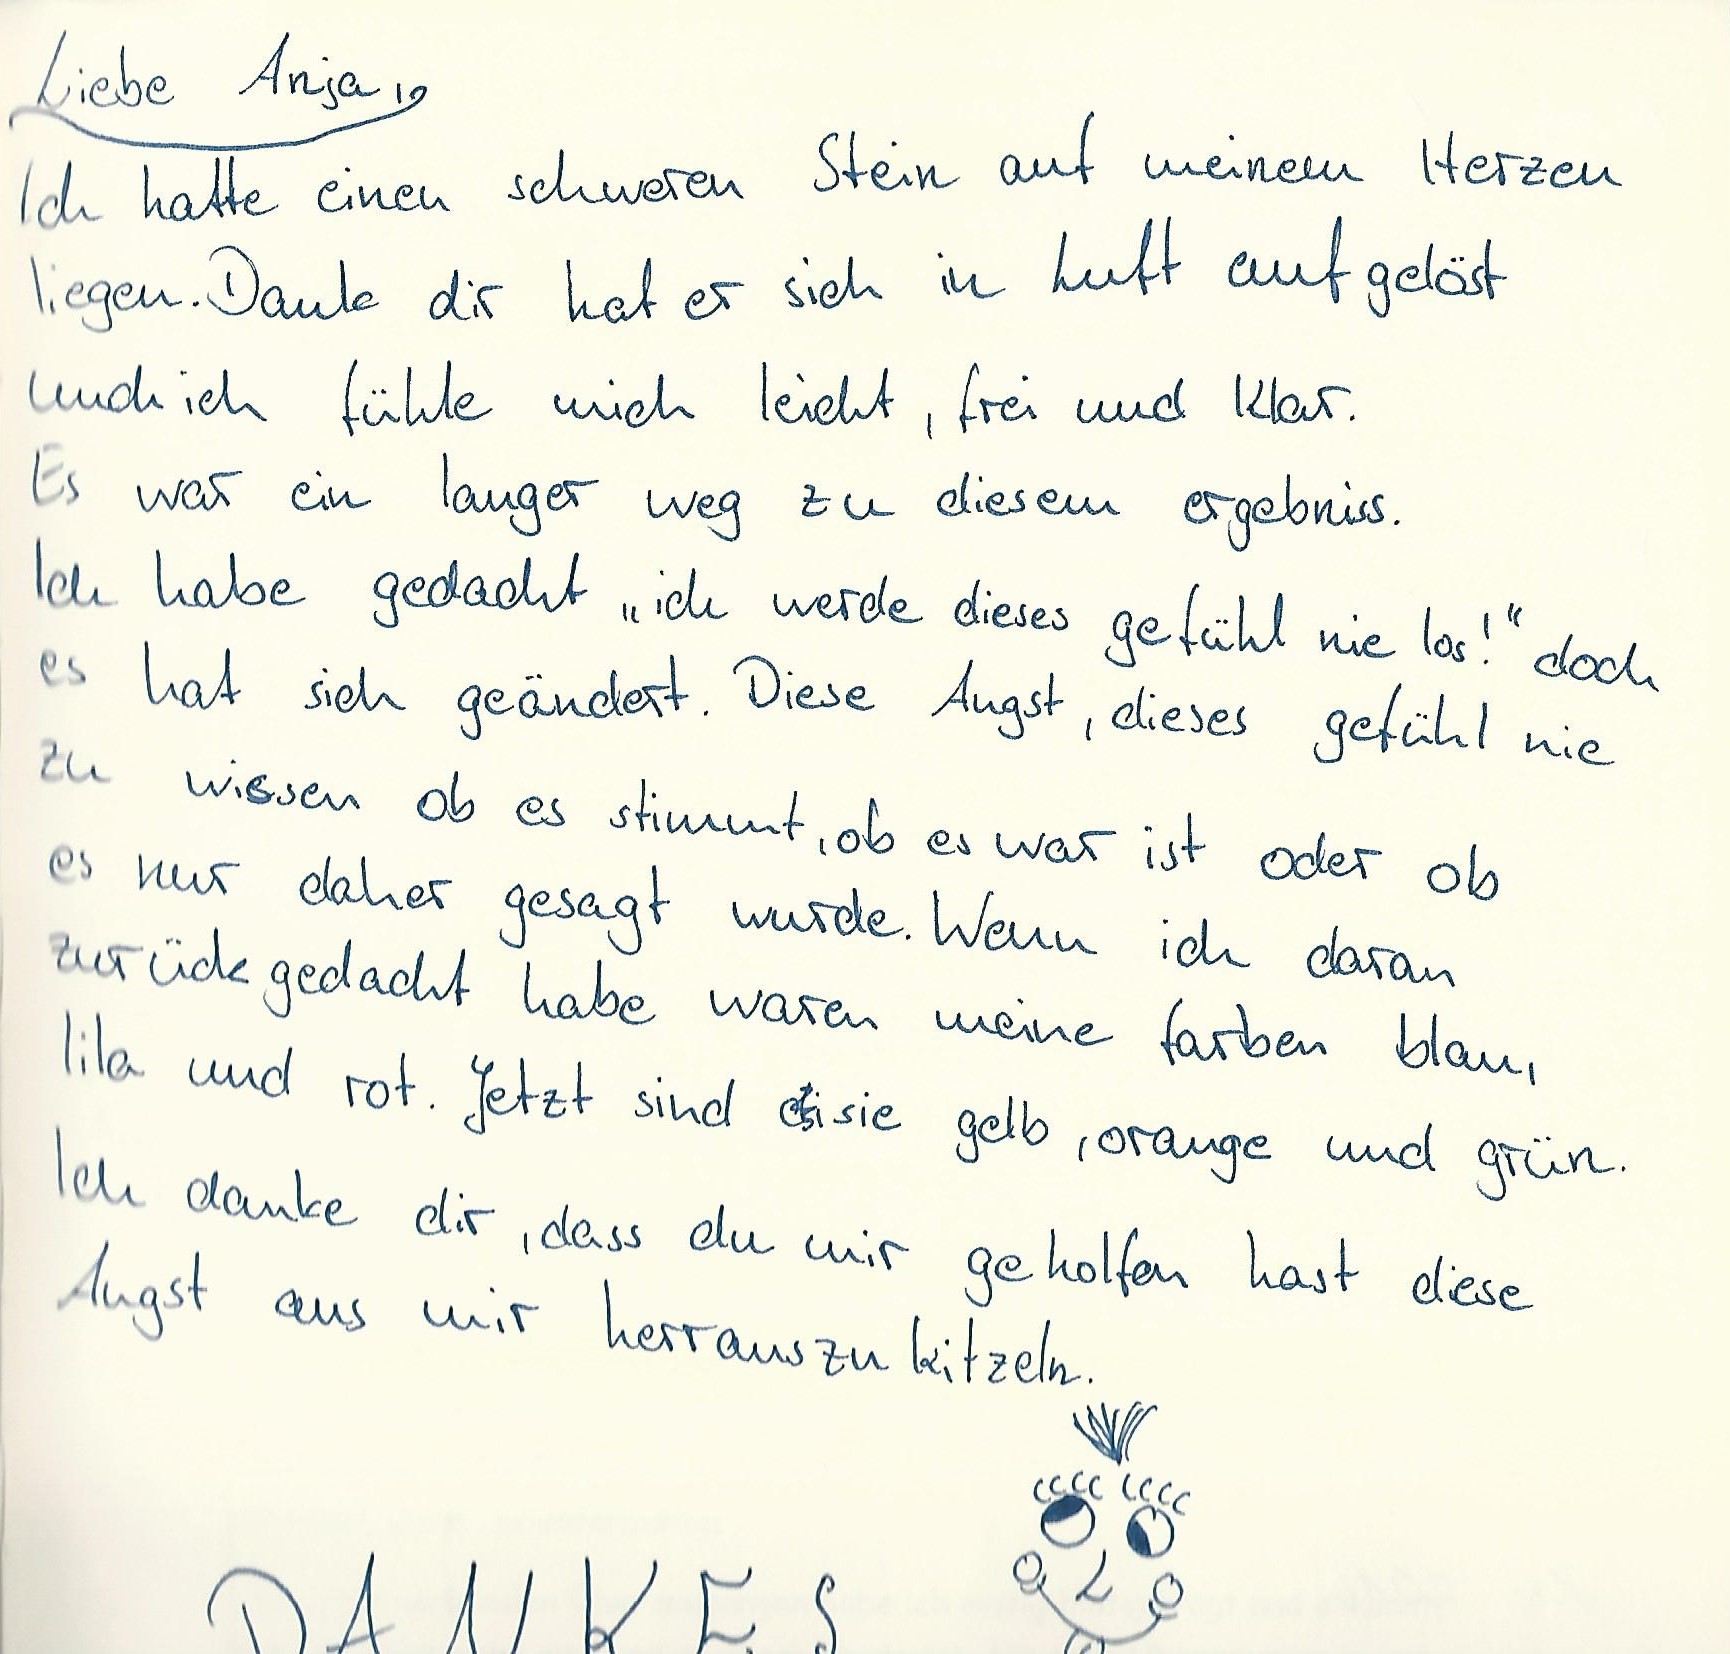 Liebe Anja,
Ich hatte einen schweren Stein auf meinem Herzen
liegen. Dank dir hat er sich in Luft aufgelöst
und ich fühle mich leicht, frei und klar.
Es war ein langer weg zu diesem ergebniss.
Ich habe gedacht „ich werde dieses gefühl nie los!“ doch
es hat sich geändert. Diese Angst, dieses gefühl nie
zu wissen ob es stimmt, ob es war ist oder ob
es nur daher gesagt wurde. Wenn ich daran
zurück gedacht habe waren meine farben blau,
lila und rot. Jetzt sind sie gelb, orange und grün.
Ich danke dir, dass du mir geholfen hast diese
Angst aus mir herraus zu kitzeln.
DANKE